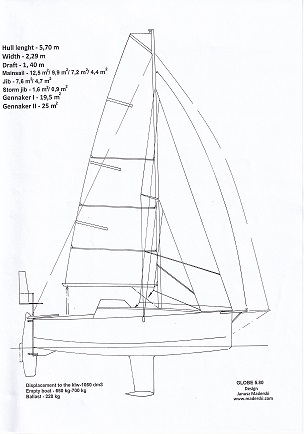 Hull lenght - 5,70 m
Width - 2,29 m
Draft - 1, 40 m
Mainsail - 12,5 m²/ 9,9 m²/ 7,2 m²/ 4,4 m²
Jib - 7,6 m²/ 4,7 m²
Storm jib - 1,6 m²/ 0,9 m²
Gennaker I - 19,5 m²
Gennaker II - 25 m²
Displacement to the klw-1060 dm3
Empty boat - 650 kg-700 kg
Ballast - 220 kg
GLOBE 5.80
Design
Janusz Maderski
www.maderski.com